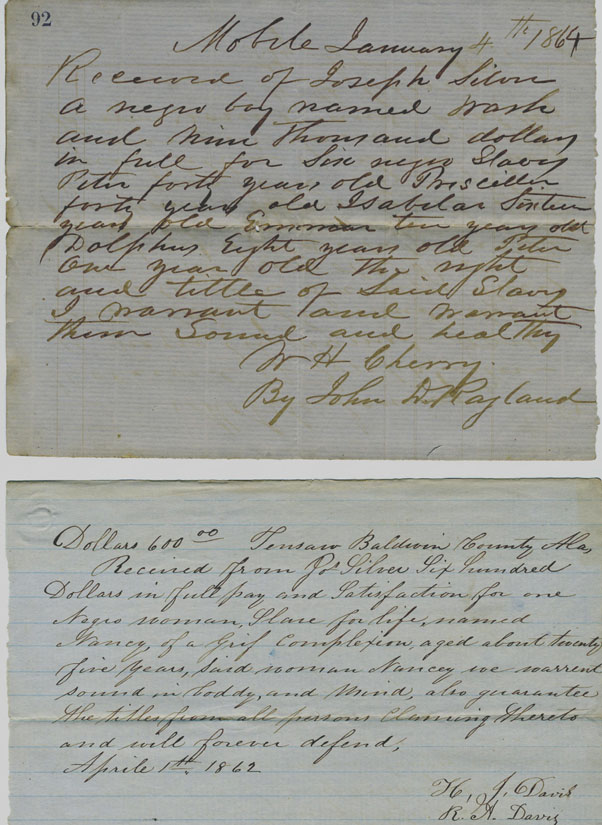 92
Mobile January 4th 1864
Received of Joseph Silver
a negro boy named Wash
and Nine Thousand dollars
in full for Six negro Slaves
Peter forty years old Prisciller
forty years old Isabelar Sixteen
years old Emmar ten years old
Dolphus Eight years old Peter
One year old the right
and tittle of Said Slaves
I warrant and warrant
them Sound and healthy
W H Cherry.
By John D. Ragland
Dollars 600 00 Tensaw Baldwin County Ala
Received from Jos Silver Six hundred
Dollars in full pay and Satisfaction for one
Negro woman, Slave for life, named
Nancy, of a Grif Complexion, aged about twenty
five Years, Said woman Nancey we warrent
sound in boddy, and Mind, also guarantee
the titles from all persons Claming thereto
and will forever defend,
Aprile 1th 1862
H, J, Davis
R. A. Davis